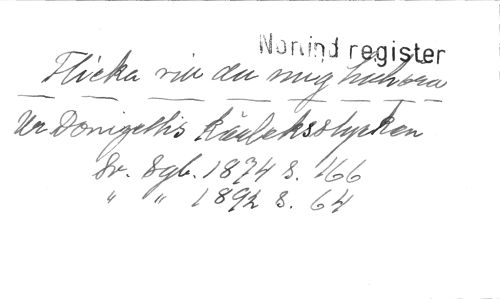 Norlind register
Flicka vill du mig tillhöra
Ur Donizettis Kärleksdrycken
Sv. Sgb. 1874 s. 166
" " 1892 s. 64